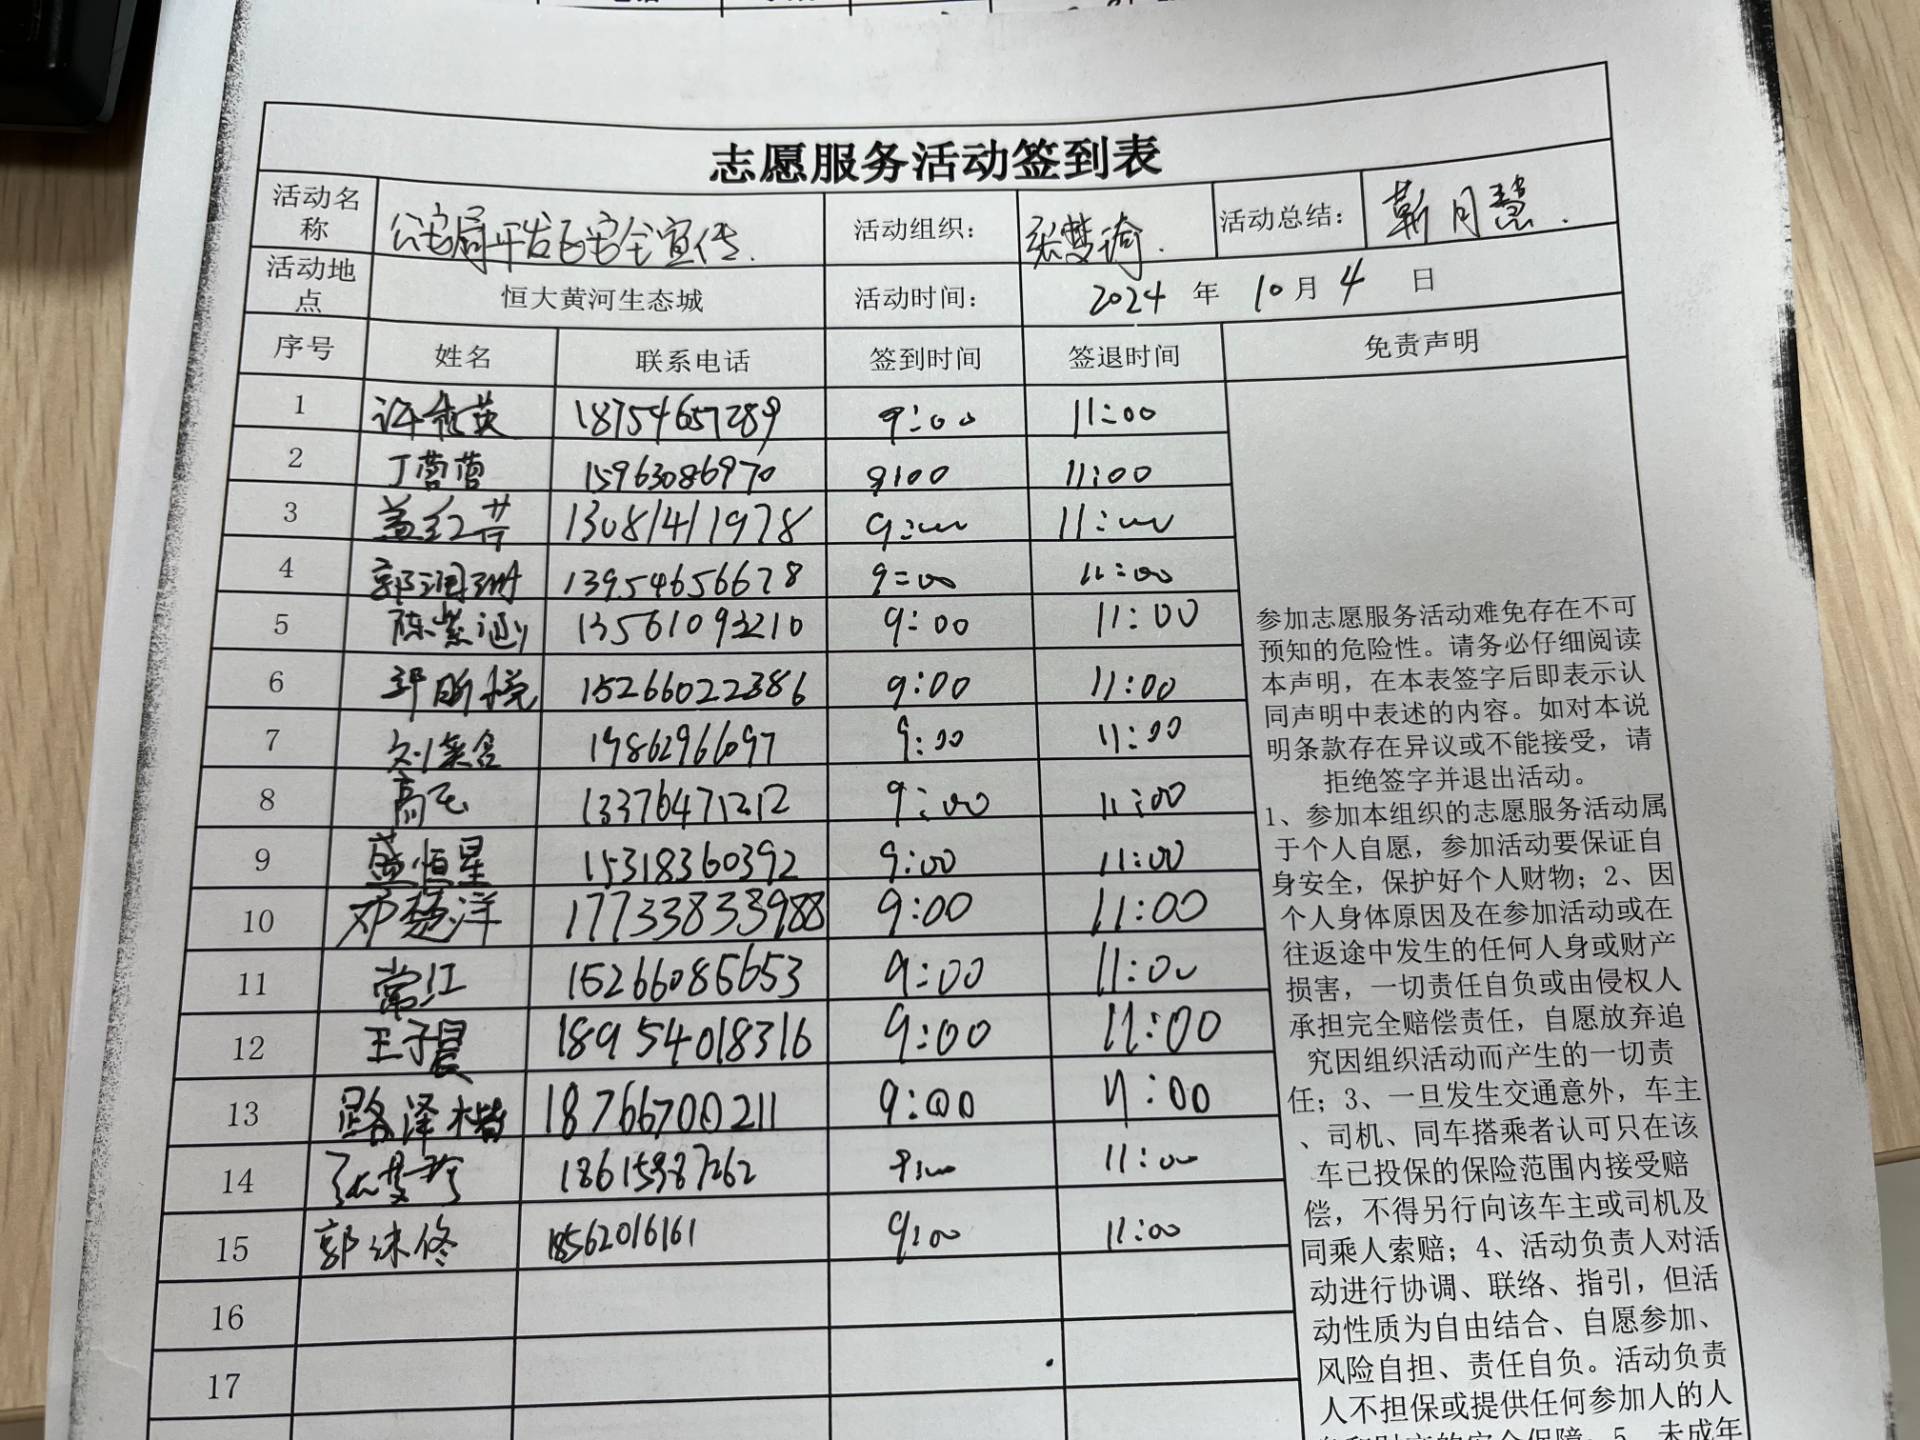 志愿服务活动签到表
活动名称 公安局开发区安全宣传. 活动组织： 张梦琦. 活动总结： 靳月慧.
活动地点 恒大黄河生态城 活动时间： 2024 年 10 月 4 日
序号 姓名 联系电话 签到时间 签退时间 免责声明
1 许秀英 18754657289 9:00 11:00
2 丁蕾蕾 15963086970 9:00 11:00
3 盖红芸 13081411978 9:00 11:00
4 郭润珊 13954656678 9:00 11:00
5 陈紫涵 13561093210 9:00 11:00
6 郭昕悦 15266022386 9:00 11:00
7 刘奕含 19862966097 9:00 11:00
8 高飞 13376471212 9:00 11:00
9 盛恒星 15318360392 9:00 11:00
10 邓楚洋 17733833988 9:00 11:00
11 常江 15266085653 9:00 11:00
12 王子晨 18954018316 9:00 11:00
13 路泽楷 18766700211 9:00 11:00
14 张梦珍 18615987262 9:00 11:00
15 郭沐修 18562016161 9:00 11:00
16
17
参加志愿服务活动难免存在不可
预知的危险性。请务必仔细阅读
本声明，在本表签字后即表示认
同声明中表述的内容。如对本说
明条款存在异议或不能接受，请
拒绝签字并退出活动。
1、参加本组织的志愿服务活动属
于个人自愿，参加活动要保证自
身安全，保护好个人财物；2、因
个人身体原因及在参加活动或在
往返途中发生的任何人身或财产
损害，一切责任自负或由侵权人
承担完全赔偿责任，自愿放弃追
究因组织活动而产生的一切责
任；3、一旦发生交通意外，车主
、司机、同车搭乘者认可只在该
车已投保的保险范围内接受赔
偿，不得另行向该车主或司机及
同乘人索赔；4、活动负责人对活
动进行协调、联络、指引，但活
动性质为自由结合、自愿参加、
风险自担、责任自负。活动负责
人不担保或提供任何参加人的人
身和财产的安全保障；5、未成年